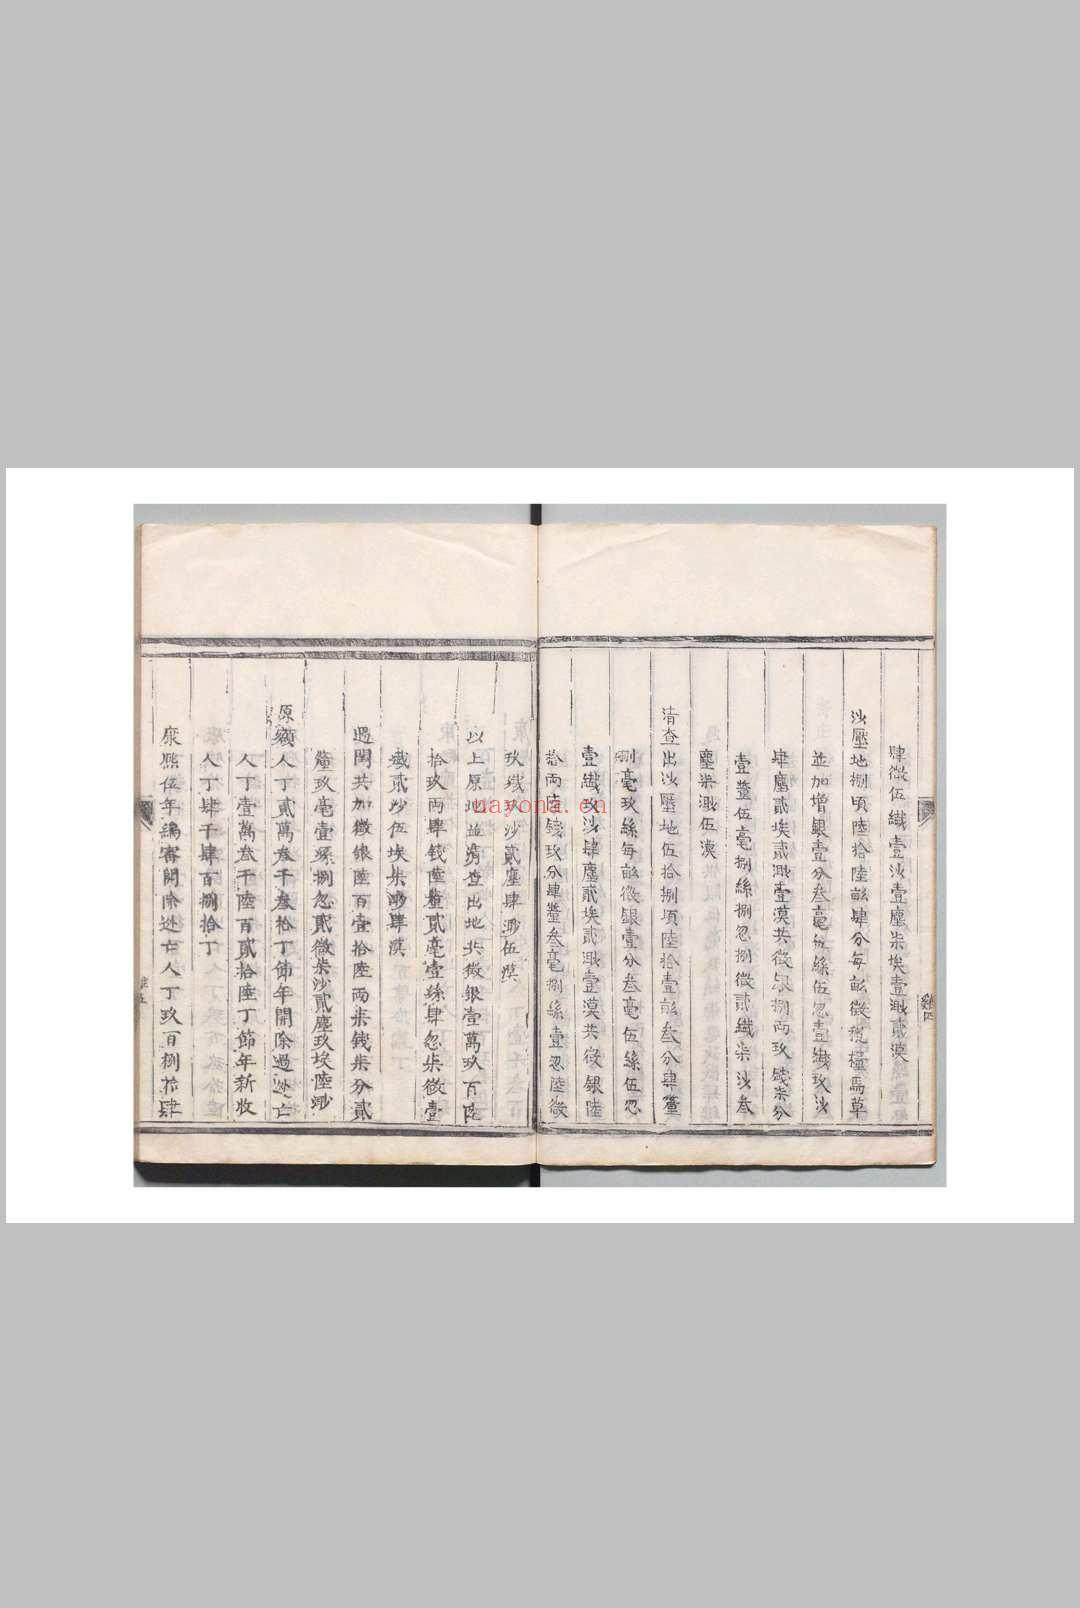 肆微伍纖壹沙壹塵柒埃壹渺貳漠
沙壓地捌頃陸拾陸畝肆分每畝徵稅糧馬草
並加增銀壹分叁毫伍絲伍忽壹纖玖沙
肆塵貳埃貳渺壹漠共徵銀捌兩玖錢柒分
壹釐伍毫捌絲捌忽捌微貳纖柒沙叁
塵柒渺伍漠
清查出沙壓地伍拾捌頃陸拾壹畝叁分肆釐
捌毫玖絲每畝徵銀壹分叁毫伍絲伍忽
壹纖玖沙肆塵貳埃貳渺壹漠共徵銀陸
拾兩陸錢玖分肆釐叁毫捌絲壹忽陸微
玖纖玖沙貳塵肆渺伍漠
以上原地並清查出地共徵銀壹萬玖百陸
拾玖兩肆錢陸釐貳毫壹絲肆忽柒微壹
纖貳沙伍埃柒渺肆漠
遇閏共加徵銀陸百壹拾陸兩柒錢柒分貳
釐玖毫壹絲捌忽貳微柒沙貳塵玖埃陸渺
原額人丁貳萬叁千叁拾丁節年開除過逃亡
人丁壹萬叁千陸百貳拾陸丁節年新收
人丁肆千肆百捌拾丁
康熙伍年編審開除逃亡人丁玖百捌拾肆
nayona.cn